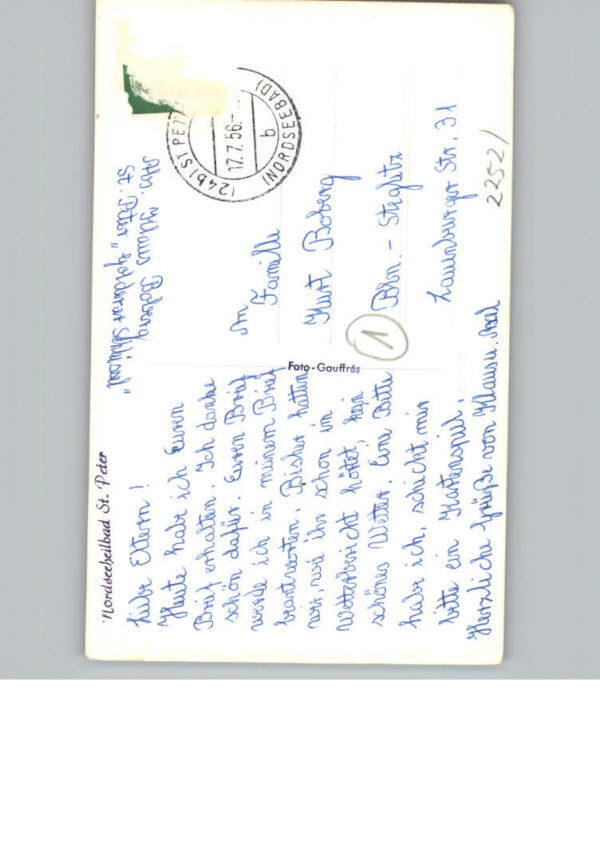 Nordseeheilbad St. Peter
Liebe Eltern!
Heute habe ich Euren
Brief erhalten. Ich danke
schön dafür. Euren Brief
werde ich in meinem Brief
beantworten. Bisher hatten
wir, wie ihr schon im
Wetterbericht hörtet, kein
schönes Wetter. Eine Bitte
habe ich, schickt mir
bitte ein Kartenspiel.
Herzliche Grüße von Klaus u.
Foto-Gauffrés
Abs. Klaus Boberg
St. Peter
(24b) ST PETER
17.7.56.-
b
(NORDSEEBAD)
An
Familie
Kurt Boberg
1
Bln.-Steglitz
Lauenburger Str. 31
2252/